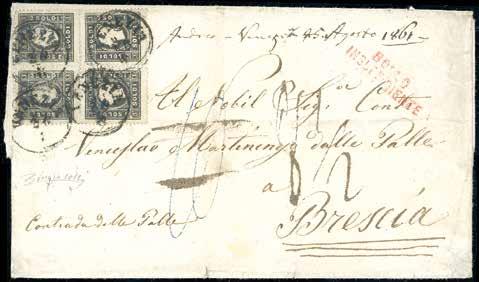 3 SOLDI 3 SOLDI
3 SOLDI 3 SOLDI
VENEZIA
Venezia 25 Agosto 1861
BOLLO
INSUFFICIENTE
Al Nobil Sigr Conte
Venceslao Martinengo delle Palle
a
Brescia
Contrada delle Palle